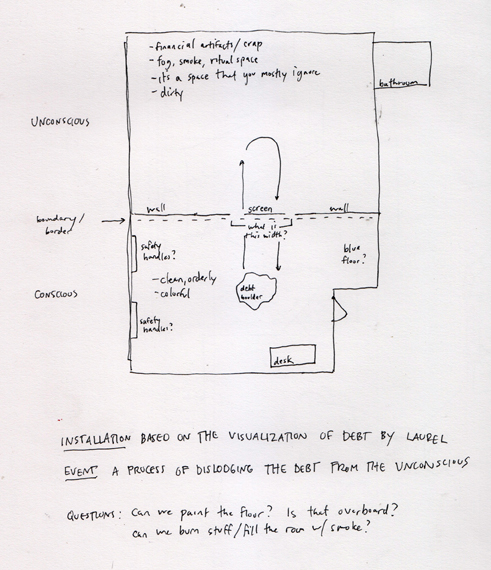 - financial artifacts/crap
- fog, smoke, ritual space
- it's a space that you mostly ignore
- dirty
bathroom
UNCONSCIOUS
wall
screen
wall
boundary/
border
what is
this width?
safety
handles?
blue
floor?
- clean, orderly
- colorful
CONSCIOUS
debt
boulder
safety
handles?
desk
INSTALLATION BASED ON THE VISUALIZATION OF DEBT BY LAUREL
EVENT A PROCESS OF DISLODGING THE DEBT FROM THE UNCONSCIOUS
QUESTIONS: Can we paint the floor? Is that overboard?
can we burn stuff/fill the room w/ smoke?